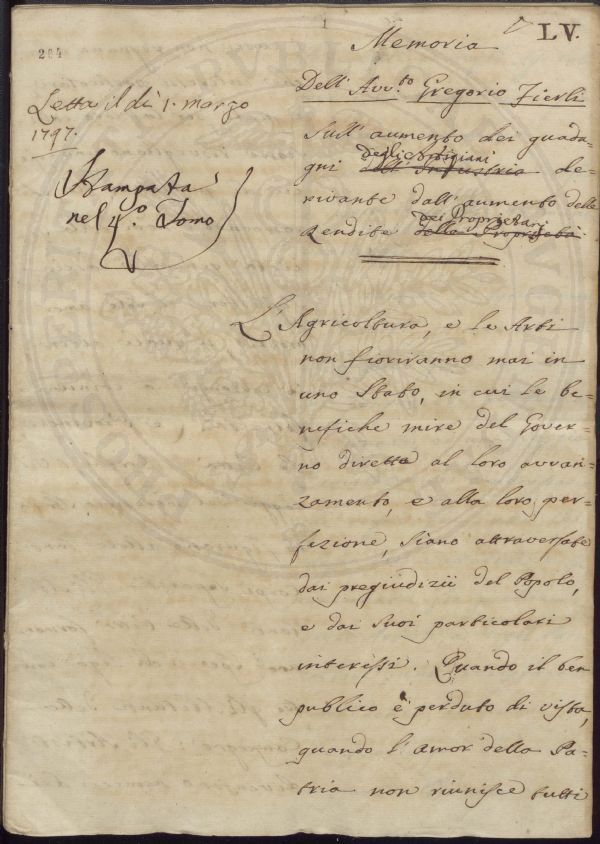 1
LV.
204
Memoria
Dell' Avv.to Gregorio Fierli
Letta il dì 1. marzo
1797.
Stampata
nel 4.o Tomo
sull' aumento dei guada-
gni dell' Industria degli Artigiani de-
rivante dall' aumento delle
Rendite della Proprietà dei Proprietarj
L' Agricoltura, e le Arti
non fioriranno mai in
uno Stato, in cui le be-
nefiche mire del Gover-
no dirette al loro avvan-
zamento, e alla loro per-
fezione, siano attraversate
dai pregiudizii del Popolo,
e dai suoi particolari
interessi. Quando il ben
publico è perduto di vista,
quando l' amor della Pa-
tria non riunisce tutti